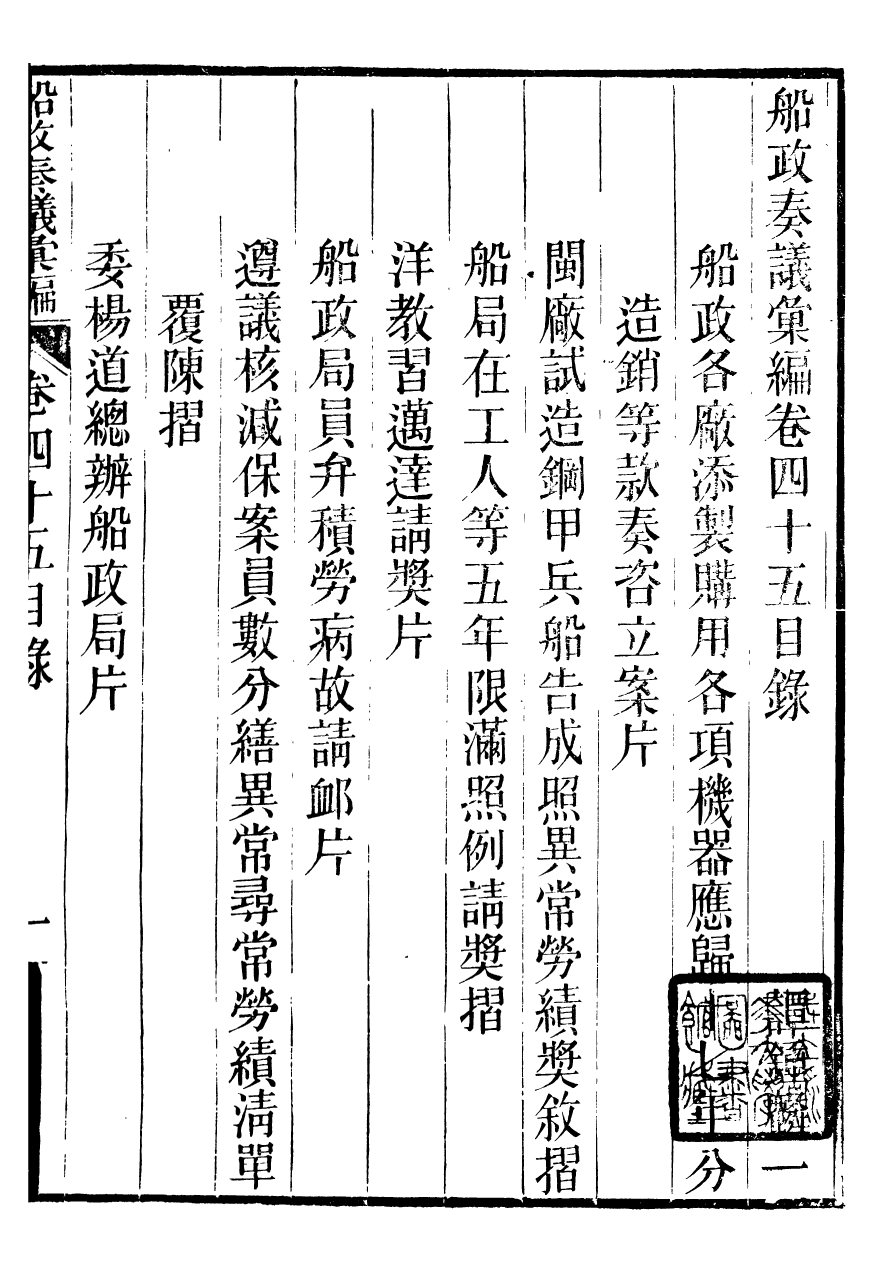 船政奏議彙編卷四十五目錄 一
船政各廠添製購用各項機器應歸十七年分
造銷等款奏咨立案片
閩廠試造鋼甲兵船告成照異常勞績獎敘摺
船局在工人等五年限滿照例請獎摺
洋教習邁達請獎片
船政局員弁積勞病故請衈片
遵議核減保案員數分繕異常尋常勞績清單
覆陳摺
委楊道總辦船政局片
船政奏議彙編 卷四十五目錄 一